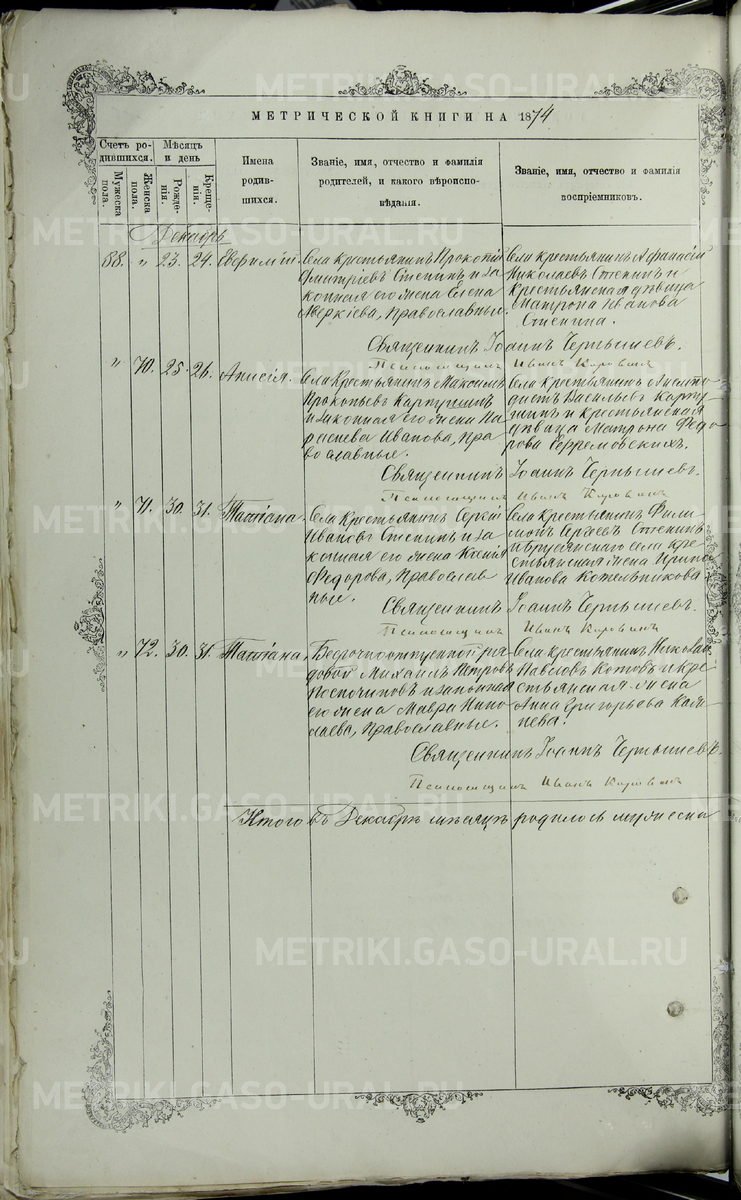 МЕТРИЧЕСКОЙ КНИГИ НА 1874
Счетъ ро-
дившихся.
Мужеска
пола.
Женска
пола.
Мѣсяцъ
и день
Рожде-
нія.
Креще-
нія.
Имена
родив-
шихся.
Званіе, имя, отчество и фамилія
родителей, и какого вѣроиспо-
вѣданія.
Званіе, имя, отчество и фамилія
воспріемниковъ.
Декабрь
88. " 23. 24. Евфимій.
Села крестьянинъ Прокопій
Дмитріевъ Степинъ и за
конная его жена Елена
Аверкіева, Православные.
Села крестьянинъ Афанасій
Николаевъ Степинъ и
крестьянская дѣвица
Матрона Иванова
Степина.
Священникъ Іоаннъ Чернышевъ.
Псаломщикъ Иванъ Коровинъ
" 70. 25. 26. Анисія.
Села Крестьянинъ Максимъ
Прокопьевъ
и законная его жена Па
раскева Иванова, Пра
вославные.
Села Крестьянинъ
Васильевъ
и крестьянская
дѣвица Матрона Федо
рова
Священникъ Іоаннъ Чернышевъ.
Псаломщикъ Иванъ Коровинъ
" 71. 30. 31. Татіана.
Села Крестьянинъ Сергій
Ивановъ Степинъ и за
конная его жена Ксенія
Федорова, Православ
ные.
Села Крестьянинъ Фили
монъ Сергѣевъ Степинъ
села кре
стьянская жена Ирина
Иванова Котельникова
Священникъ Іоаннъ Чернышевъ.
Псаломщикъ Иванъ Коровинъ
" 72. 30. 31. Татіана.
Безсрочноотпускной ря
довой Михаилъ Петровъ
и законная
его жена Мавра Нико
лаева, Православные.
Села Крестьянинъ
Павловъ Котовъ и кре
стьянская жена
Анна Григорьева
Священникъ Іоаннъ Чернышевъ.
Псаломщикъ Иванъ Коровинъ
Итого въ Декабрѣ мѣсяцѣ родилось мужеска
METRIKI.GASO-URAL.RU